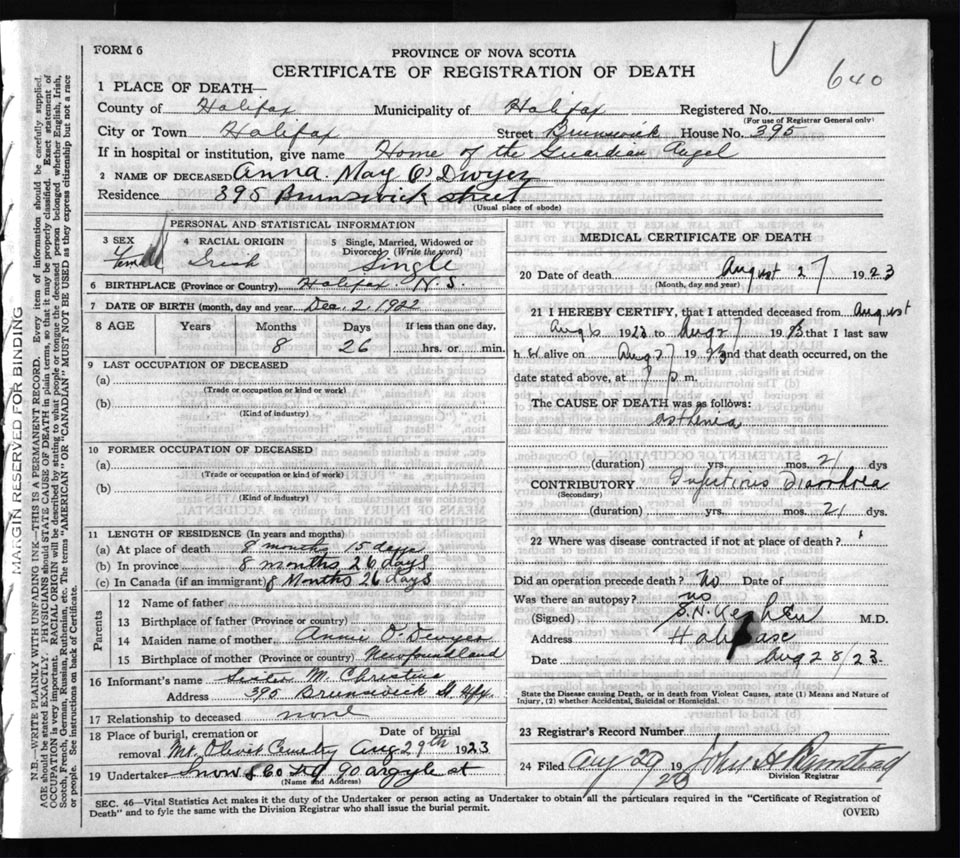 FORM 6
PROVINCE OF NOVA SCOTIA
CERTIFICATE OF REGISTRATION OF DEATH
640
1 PLACE OF DEATH—
County of Halifax Municipality of Halifax Registered No.
(For use of Registrar General only)
City or Town Halifax Street Brunswick House No. 395
If in hospital or institution, give name Home of the Guardian Angel
2 NAME OF DECEASED Anna May O'Dwyer
Residence 395 Brunswick street
(Usual place of abode)
PERSONAL AND STATISTICAL INFORMATION
3 SEX Female 4 RACIAL ORIGIN Irish 5 Single, Married, Widowed or Divorced (Write the word) Single
6 BIRTHPLACE (Province or Country) Halifax N. S.
7 DATE OF BIRTH (month, day and year) Dec. 2, 1922
8 AGE Years Months Days If less than one day,
8 26 hrs. or min.
9 LAST OCCUPATION OF DECEASED
(a)
(Trade or occupation or kind or work)
(b)
(Kind of industry)
10 FORMER OCCUPATION OF DECEASED
(a)
(Trade or occupation or kind of work)
(b)
(Kind of Industry)
11 LENGTH OF RESIDENCE (In years and months)
(a) At place of death 8 months 15 days
(b) In province 8 months 26 days
(c) In Canada (if an immigrant) 8 Months 26 days
Parents
12 Name of father
13 Birthplace of father (Province or country)
14 Maiden name of mother Annie O'Dwyer
15 Birthplace of mother (Province or country) Newfoundland
16 Informant's name Sister M. Christina
Address 395 Brunswick St Hfx.
17 Relationship to deceased none
18 Place of burial, cremation or removal Mt. Olivet Cemetry Date of burial Aug 29th 1923
19 Undertaker Snow & Co Ltd 90 argyle st
(Name and Address)
MEDICAL CERTIFICATE OF DEATH
20 Date of death August 27 1923
(Month, day and year)
21 I HEREBY CERTIFY, that I attended deceased from August
Aug 6 1923 to Aug 27 1923 that I last saw
h er alive on Aug 27 1923 and that death occurred, on the
date stated above, at p m.
The CAUSE OF DEATH was as follows:
asthenia
(duration) yrs. mos. 21 dys
CONTRIBUTORY Infectious Diarrhoea
(Secondary)
(duration) yrs. mos. 21 dys.
22 Where was disease contracted if not at place of death?
Did an operation precede death? No Date of
Was there an autopsy? no
(Signed) M.D.
Address Halifax
Date Aug 28/23.
State the Disease causing Death, or in death from Violent Causes, state (1) Means and Nature of Injury, (2) whether Accidental, Suicidal or Homicidal.
23 Registrar's Record Number
24 Filed Aug 29 1923 John H
Division Registrar
SEC. 46—Vital Statistics Act makes it the duty of the Undertaker or person acting as Undertaker to obtain all the particulars required in the "Certificate of Registration of
Death" and to fyle the same with the Division Registrar who shall issue the burial permit.
(OVER)
MARGIN RESERVED FOR BINDING
N.B.—WRITE PLAINLY WITH UNFADING INK—THIS IS A PERMANENT RECORD. Every item of information should be carefully supplied.
AGE should be stated EXACTLY. PHYSICIANS should STATE CAUSE OF DEATH in plain terms, so that it may be properly classified. Exact statement of
OCCUPATION is very important. RACIAL ORIGIN will be described by stating to what people or tongue the deceased person belonged whether English, Irish,
Scotch, French, German, Russian, Ruthenian, etc. The terms "AMERICAN" OR "CANADIAN" MUST NOT BE USED as they express citizenship but not a race
or people. See instructions on back of Certificate.